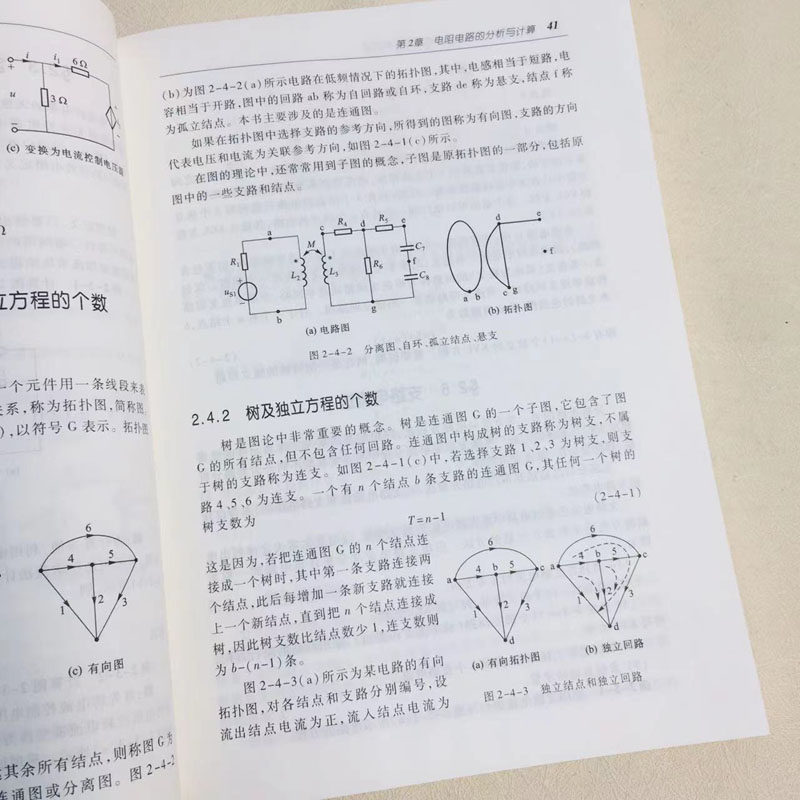 i
i₁
6Ω
+
u
3Ω
−
(c) 变换为电流控制电压源
Ω
立方程的个数
一个元件用一条线段来表
关系，称为拓扑图，简称图，
，以符号 G 表示。拓扑图
6
4
5
1
2
3
(c) 有向图
其余所有结点，则称图 G 为
连通图或分离图。图 2-4-2
第2章 电阻电路的分析与计算 41
(b)为图 2-4-2(a)所示电路在低频情况下的拓扑图，其中，电感相当于短路，电
容相当于开路，图中的回路 ab 称为自回路或自环，支路 de 称为悬支，结点 f 称
为孤立结点。本书主要涉及的是连通图。
如果在拓扑图中选择支路的参考方向，所得到的图称为有向图，支路的方向
代表电压和电流为关联参考方向，如图 2-4-1(c)所示。
在图的理论中，还常常用到子图的概念，子图是原拓扑图的一部分，包括原
图中的一些支路和结点。
a
R₁
+
uS1
−
b
M
L₂
L₃
c
R₄
d
R₅
e
C₇
f
R₆
C₈
g
(a) 电路图
a b
d
e
c g
f
(b) 拓扑图
图 2-4-2 分离图、自环、孤立结点、悬支
2.4.2 树及独立方程的个数
树是图论中非常重要的概念。树是连通图 G 的一个子图，它包含了图
G 的所有结点，但不包含任何回路。连通图中构成树的支路称为树支，不属
于树的支路称为连支。如图 2-4-1(c)中，若选择支路 1、2、3 为树支，则支
路 4、5、6 为连支。一个有 n 个结点 b 条支路的连通图 G，其任何一个树的
树支数为
T=n-1 (2-4-1)
这是因为，若把连通图 G 的 n 个结点连
接成一个树时，其中第一条支路连接两
个结点，此后每增加一条新支路就连接
上一个新结点，直到把 n 个结点连接成
树，因此树支数比结点数少 1，连支数则
为 b-(n-1)条。
图 2-4-3(a)所示为某电路的有向
拓扑图，对各结点和支路分别编号，设
流出结点电流为正，流入结点电流为
6
a 4 b 5 c
1
2
3
d
(a) 有向拓扑图
6
a 4 b 5 c
1
2
3
d
(b) 独立回路
图 2-4-3 独立结点和独立回路